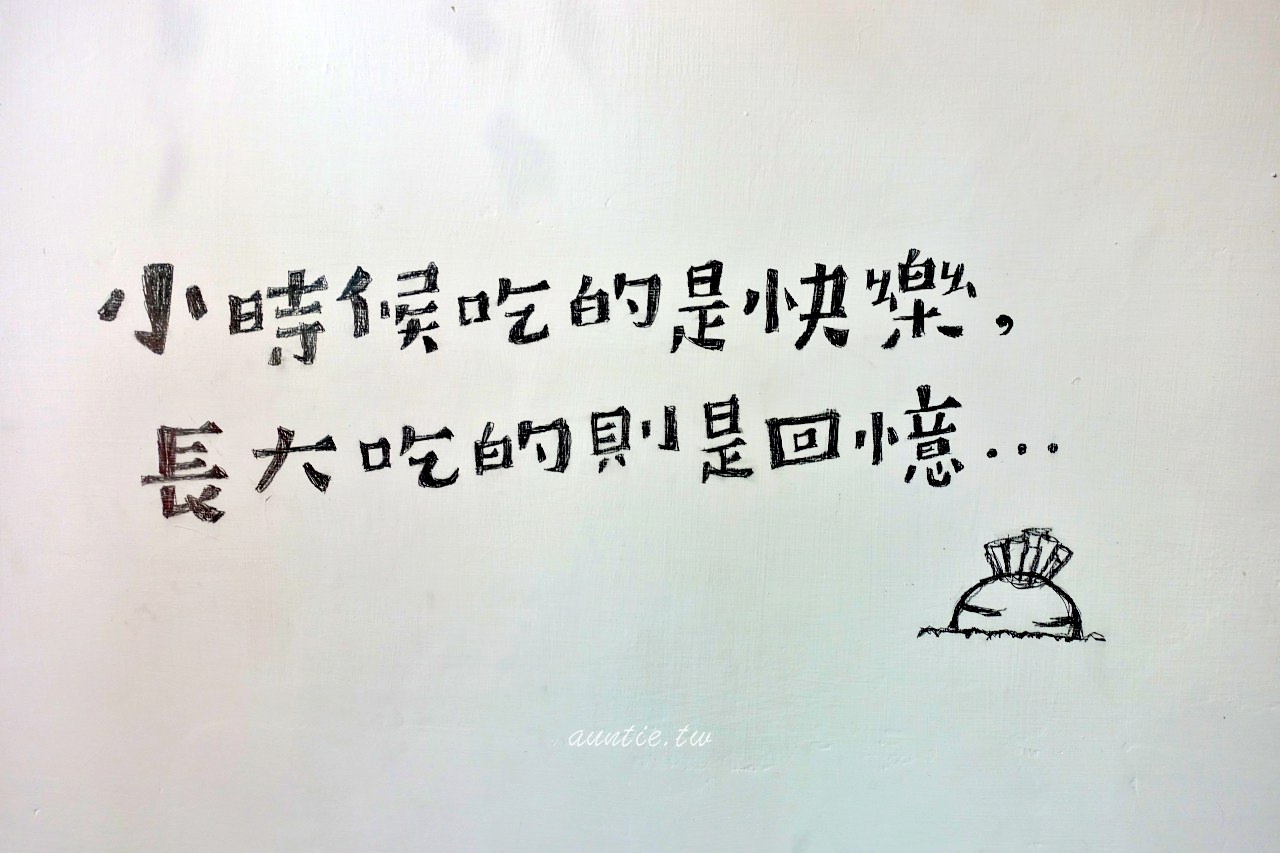 小時候吃的是快樂，
長大吃的則是回憶...
auntie.tw